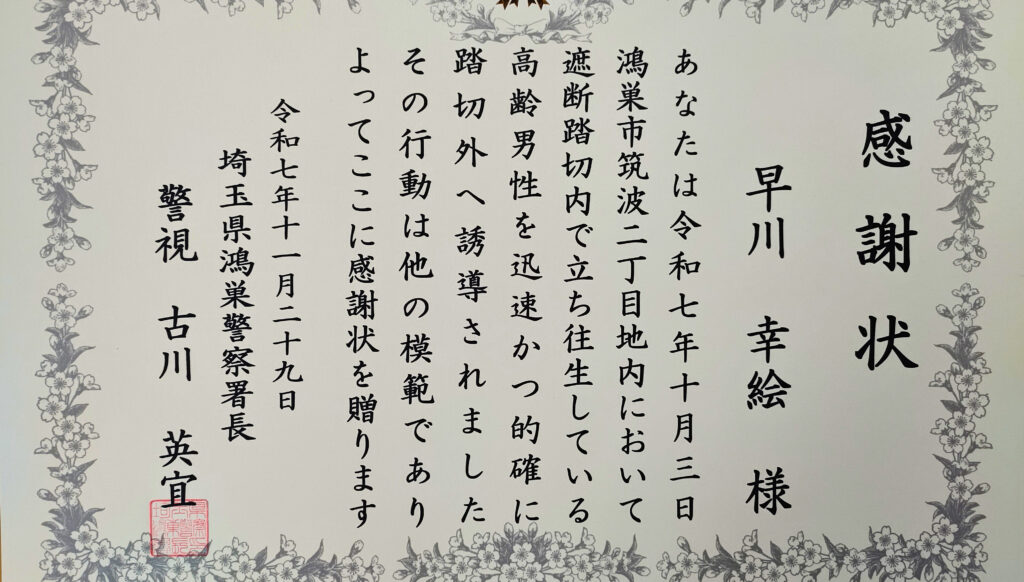 感謝状
早川 幸絵 様
あなたは令和七年十月三日
鴻巣市筑波二丁目地内において
遮断踏切内で立ち往生している
高齢男性を迅速かつ的確に
踏切外へ誘導されました
その行動は他の模範であり
よってここに感謝状を贈ります
令和七年十一月二十九日
埼玉県鴻巣警察署長
警視 古川 英宜